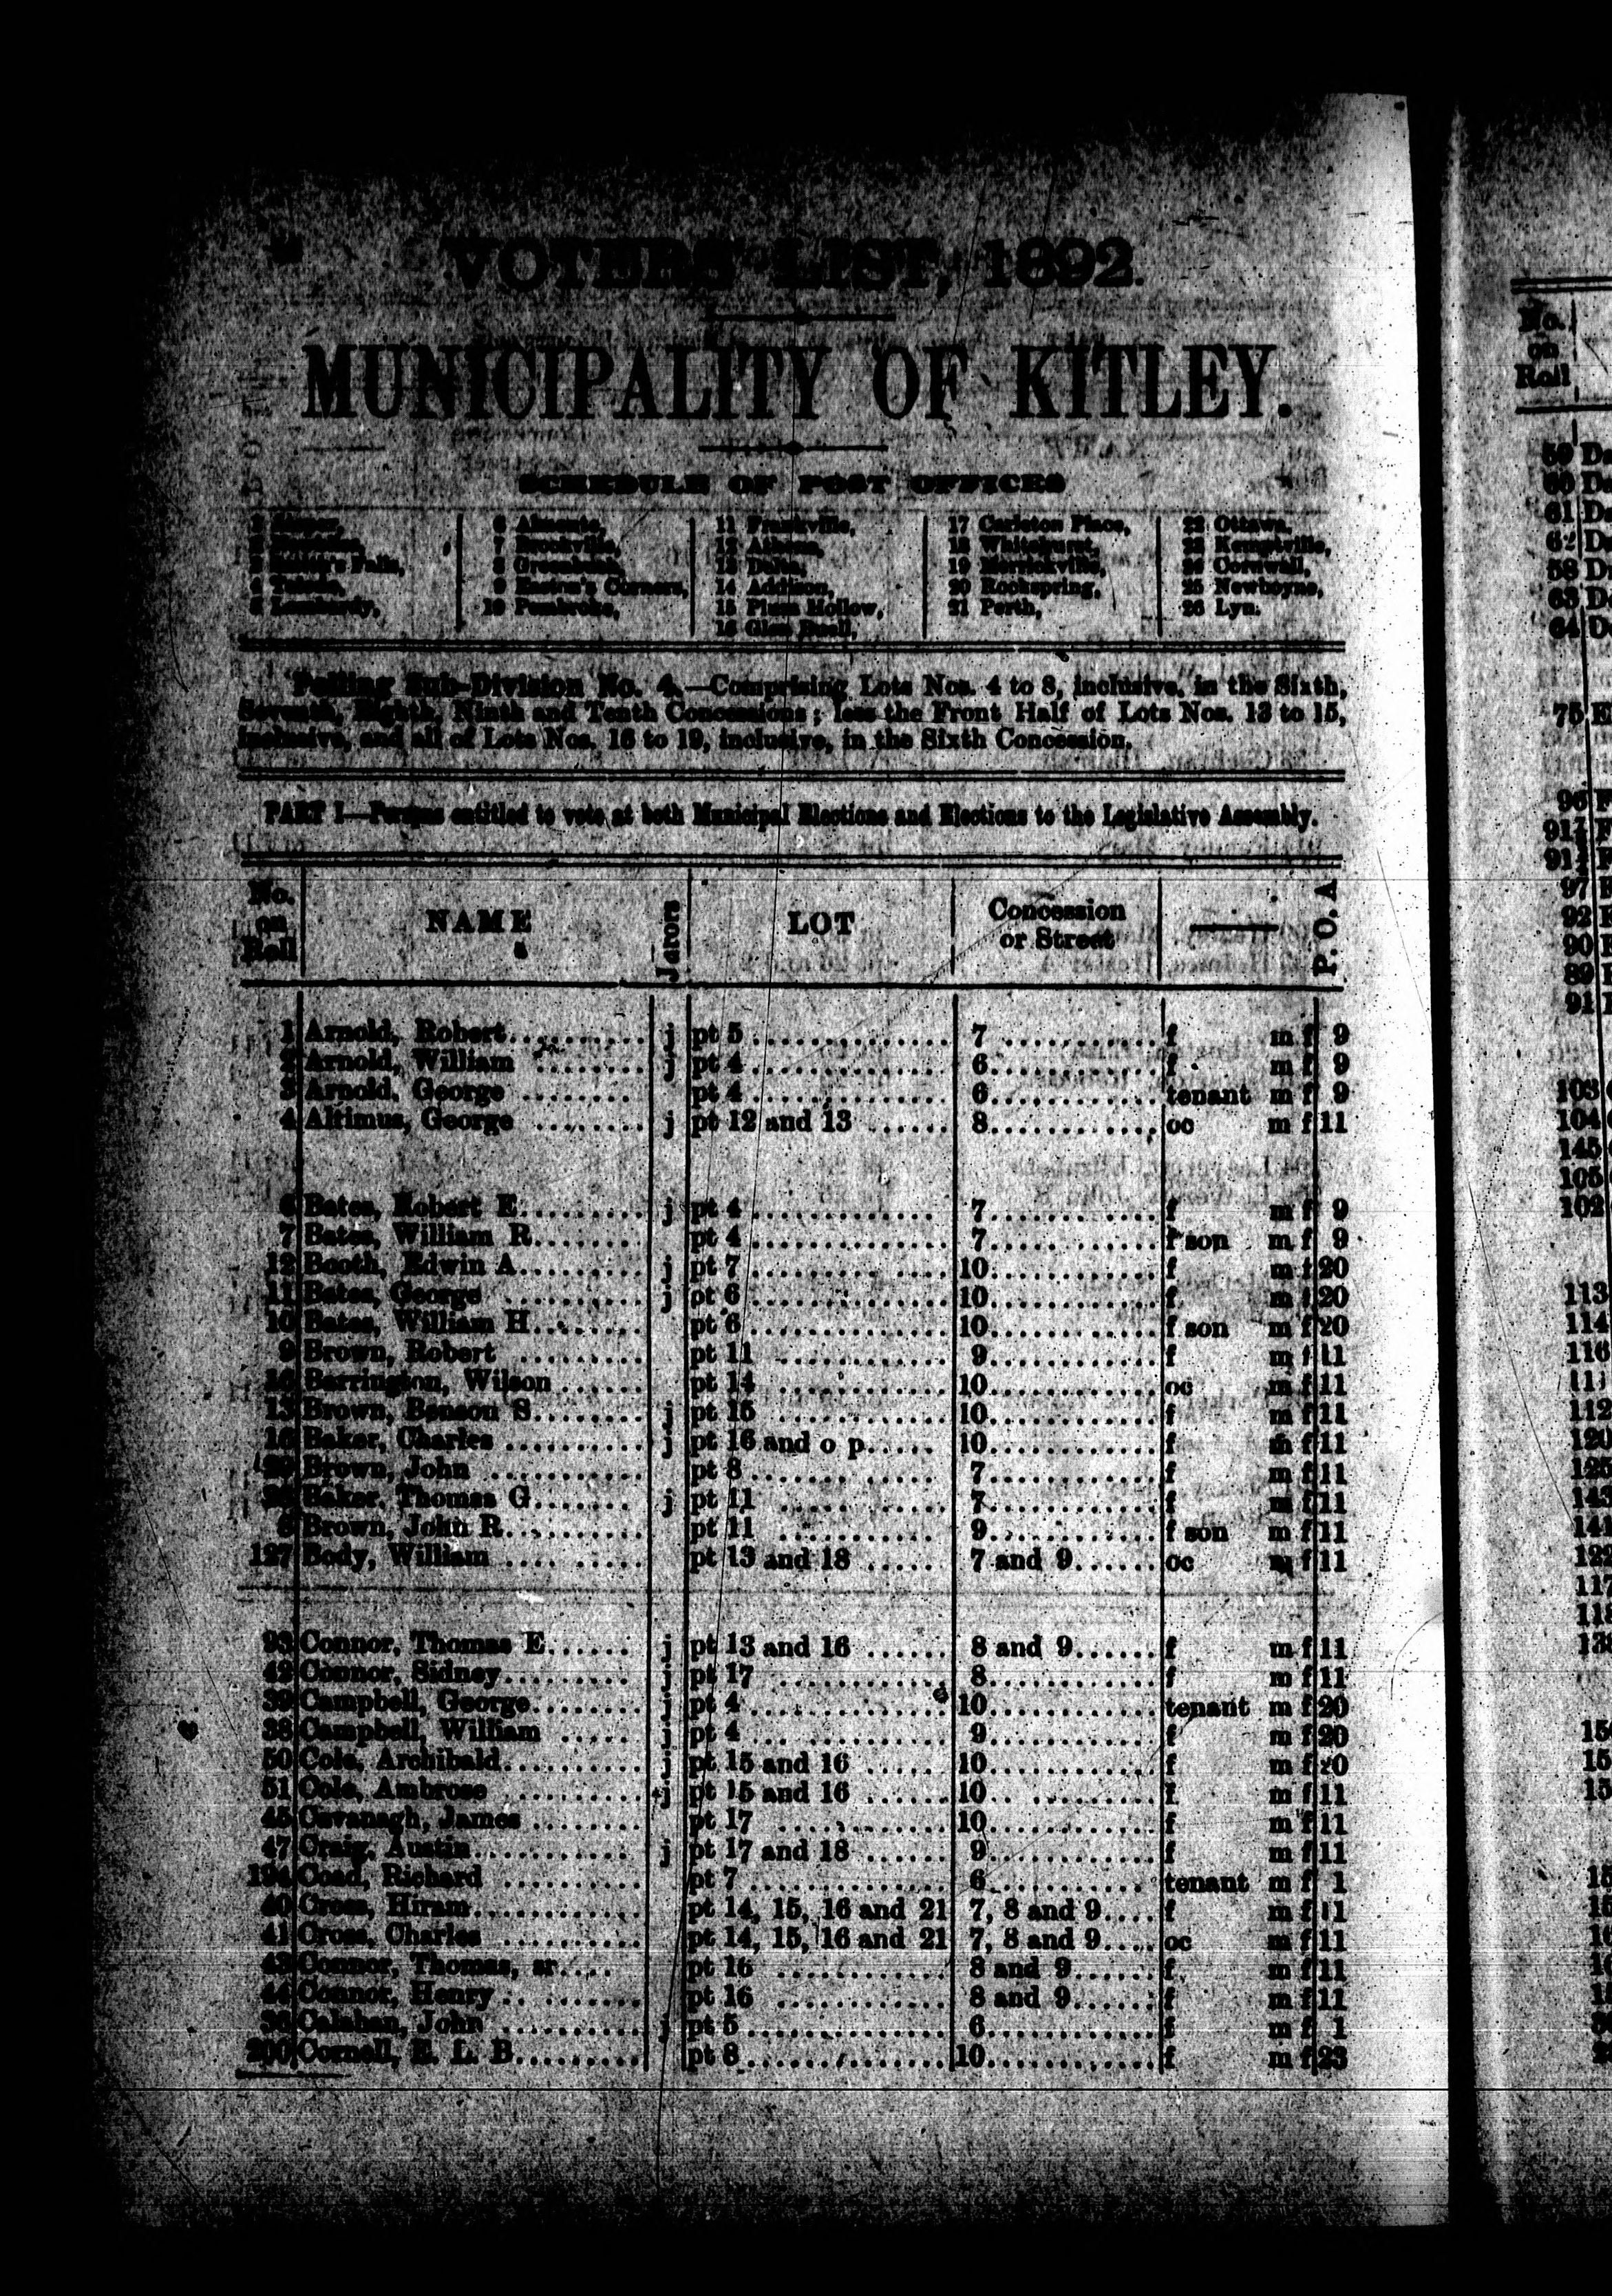 VOTERS' LIST, 1892.
MUNICIPALITY OF KITLEY.
SCHEDULE OF POST OFFICES
6 Almonte, 11 Frankville, 17 Carleton Place, 22 Ottawa,
7 Brockville, 12 Athens, 18 Whitehurst, 23 Kemptville,
3 Smith's Falls, 8 Greenbush, 13 Delta, 19 Merrickville, 24 Cornwall,
4 Toledo, 9 Easton's Corners, 14 Addison, 20 Rockspring, 25 Newboyne,
5 Lombardy, 10 Pembroke, 15 Plum Hollow, 21 Perth, 26 Lyn.
16 Glen Buell,
Polling Sub-Division No. 4.—Comprising Lots Nos. 4 to 8, inclusive, in the Sixth,
Seventh, Eighth, Ninth and Tenth Concessions; less the Front Half of Lots Nos. 13 to 15,
inclusive, and all of Lots Nos. 16 to 19, inclusive, in the Sixth Concession.
PART I—Persons entitled to vote at both Municipal Elections and Elections to the Legislative Assembly.
No. on Roll NAME Jurors LOT Concession or Street P. O. A
1 Arnold, Robert.......... j pt 5.............. 7 ............ f m f 9
2 Arnold, William ........ j pt 4.............. 6............ f m f 9
3 Arnold, George ........ pt 4.............. 6............ tenant m f 9
4 Altimus, George ........ j pt 12 and 13 ...... 8............ oc m f 11
6 Bates, Robert E......... j pt 4............. 7............ f m f 9
7 Bates, William R....... pt 4.............. 7............ f son m f 9
12 Booth, Edwin A......... j pt 7.............. 10............ f m f 20
11 Bates, George .......... j ot 6.............. 10............ f m f 20
10 Bates, William H........ pt 6.............. 10............ f son m f 20
9 Brown, Robert ......... pt 11 ............ 9............ f m f 11
Barrington, Wilson...... pt 14 ............ 10............ oc m f 11
13 Brown, Benson S........ j pt 15 ............ 10............ f m f 11
16 Baker, Charles .......... j pt 16 and o p..... 10............ f m f 11
Brown, John ........... pt 8............. 7............ f m f 11
Baker, Thomas G....... j pt 11 ............ 7............ f m f 11
8 Brown, John R.......... pt 11 ............ 9............ f son m f 11
127 Body, William ......... pt 13 and 18 ..... 7 and 9...... oc m f 11
93 Connor, Thomas E...... j pt 13 and 16 ...... 8 and 9...... f m f 11
42 Connor, Sidney......... j pt 17 ............ 8............ f m f 11
39 Campbell, George........ j pt 4.............. 10............ tenant m f 20
38 Campbell, William ..... j pt 4.............. 9............ f m f 20
50 Cole, Archibald.......... j pt 15 and 16 ...... 10............ f m f 20
51 Cole, Ambrose ......... j pt 15 and 16 ...... 10............ f m f 11
45 Cavanagh, James ........ pt 17 ............ 10............ f m f 11
47 Craig, Austin............ j pt 17 and 18 ...... 9............ f m f 11
194 Coad, Richard .......... pt 7.............. 6............ tenant m f 1
40 Cross, Hiram............ pt 14, 15, 16 and 21 7, 8 and 9.... f m f 11
41 Cross, Charles .......... pt 14, 15, 16 and 21 7, 8 and 9.... oc m f 11
43 Connor, Thomas, sr.... pt 16 ............ 8 and 9...... f m f 11
44 Connor, Henry.......... pt 16 ............ 8 and 9...... f m f 11
Calahan, John .......... j pt 5.............. 6............ f m f 1
200 Cornell, E. L. B......... pt 8.............. 10............ f m f 23
No.
on
Roll
59 De
60 De
61 De
62 De
58 D
63 D
64 D
75 E
96 F
91½ F
91½ F
97 F
92 F
90 F
89 F
91 F
103
104
145
105
102
113
114
116
112
120
125
143
141
122
117
118